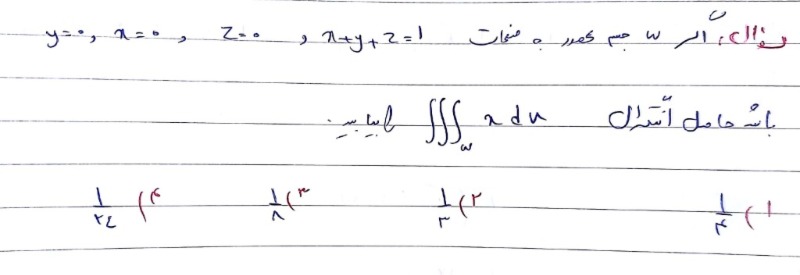 سؤال: اگر w جسم محدود به صفحات x+y+z=1 , z=0 , x=0 , y=0
باشد حاصل انتگرال ∭_w x dv را بیابید.
۱) ۱/۴ ۲) ۱/۳ ۳) ۱/۸ ۴) ۱/۲۴